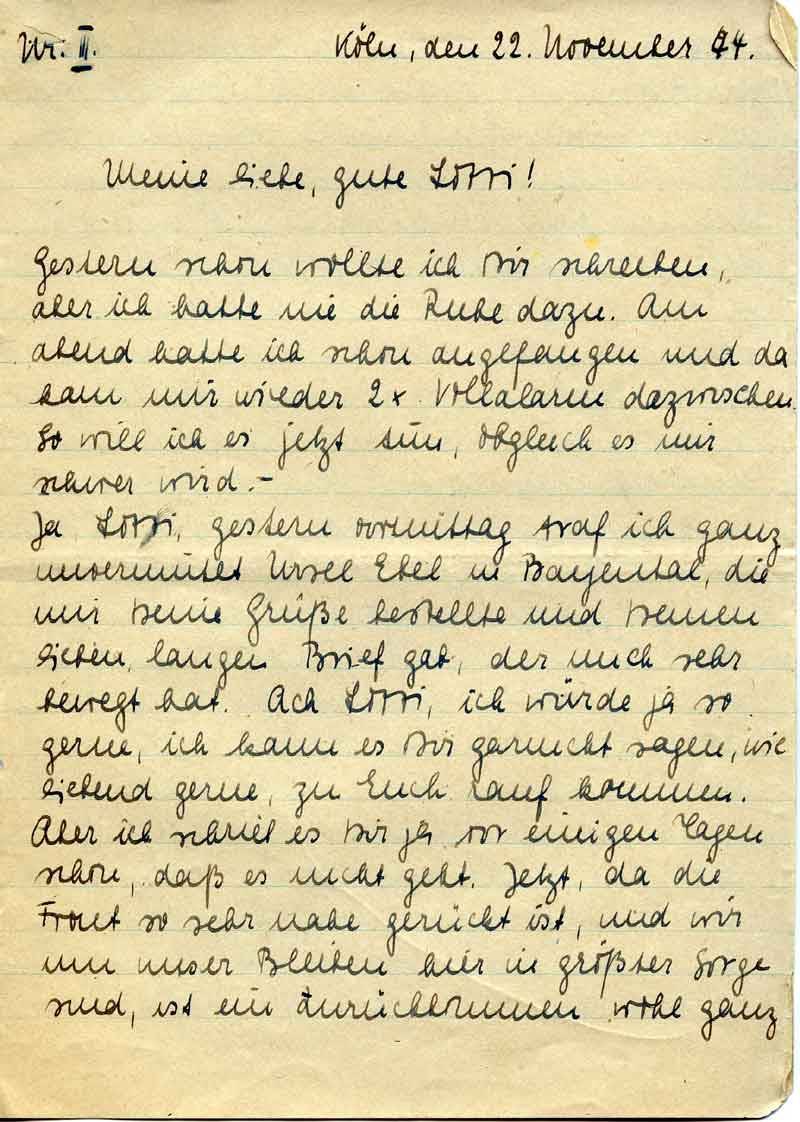 Nr. III.
Köln, den 22. November 44.
Meine liebe, gute Lotti!
Gestern schon wollte ich Dir schreiben,
aber ich hatte nie die Ruhe dazu. Am
abend hatte ich schon angefangen und da
kam mir wieder 2x Vollalarm dazwischen.
So will ich es jetzt tun, obgleich es mir
schwer wird.-
Ja Lotti, gestern vormittag traf ich ganz
unvermutet Ursel Ebel in Bayental, die
mir Deine Grüße bestellte und Deinen
lieben, langen Brief gab, der mich sehr
bewegt hat. Ach Lotti, ich würde ja so
gerne, ich kann es Dir garnicht sagen, wie
liebend gerne, zu Euch rauf kommen.
Aber ich schrieb es Dir ja vor einigen Tagen
schon, daß es nicht geht. Jetzt, da die
Front so sehr nahe gerückt ist, und wir
um unser Bleiben hier in größter Sorge
sind, ist ein Zurückkommen wohl ganz